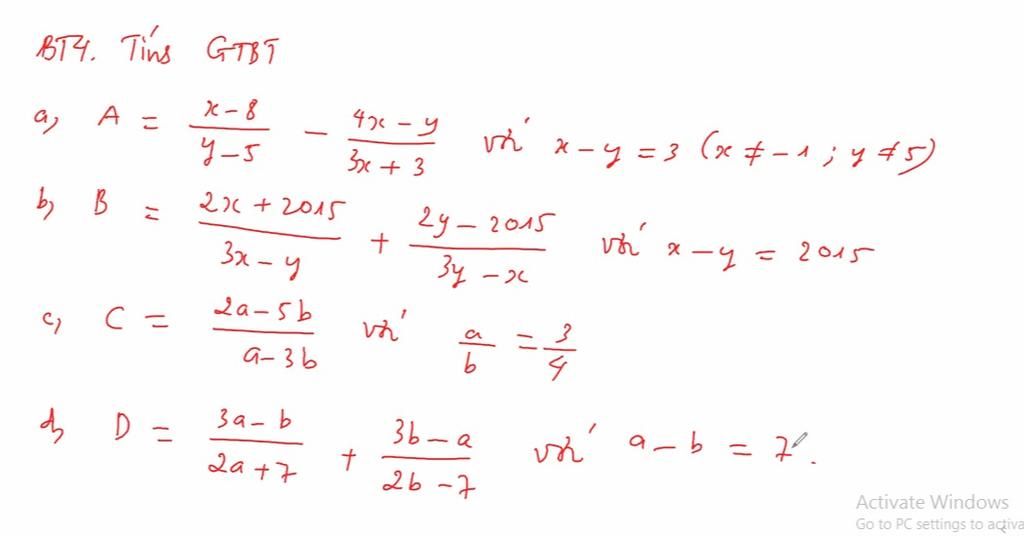 BT4. Tính GTBT
a, A = (x - 8)/(y - 5) - (4x - y)/(3x + 3) với x - y = 3 (x ≠ -1 ; y ≠ 5)
b, B = (2x + 2015)/(3x - y) + (2y - 2015)/(3y - x) với x - y = 2015
c, C = (2a - 5b)/(a - 3b) với a/b = 3/4
d, D = (3a - b)/(2a + 7) + (3b - a)/(2b - 7) với a - b = 7.
Activate Windows
Go to PC settings to activa